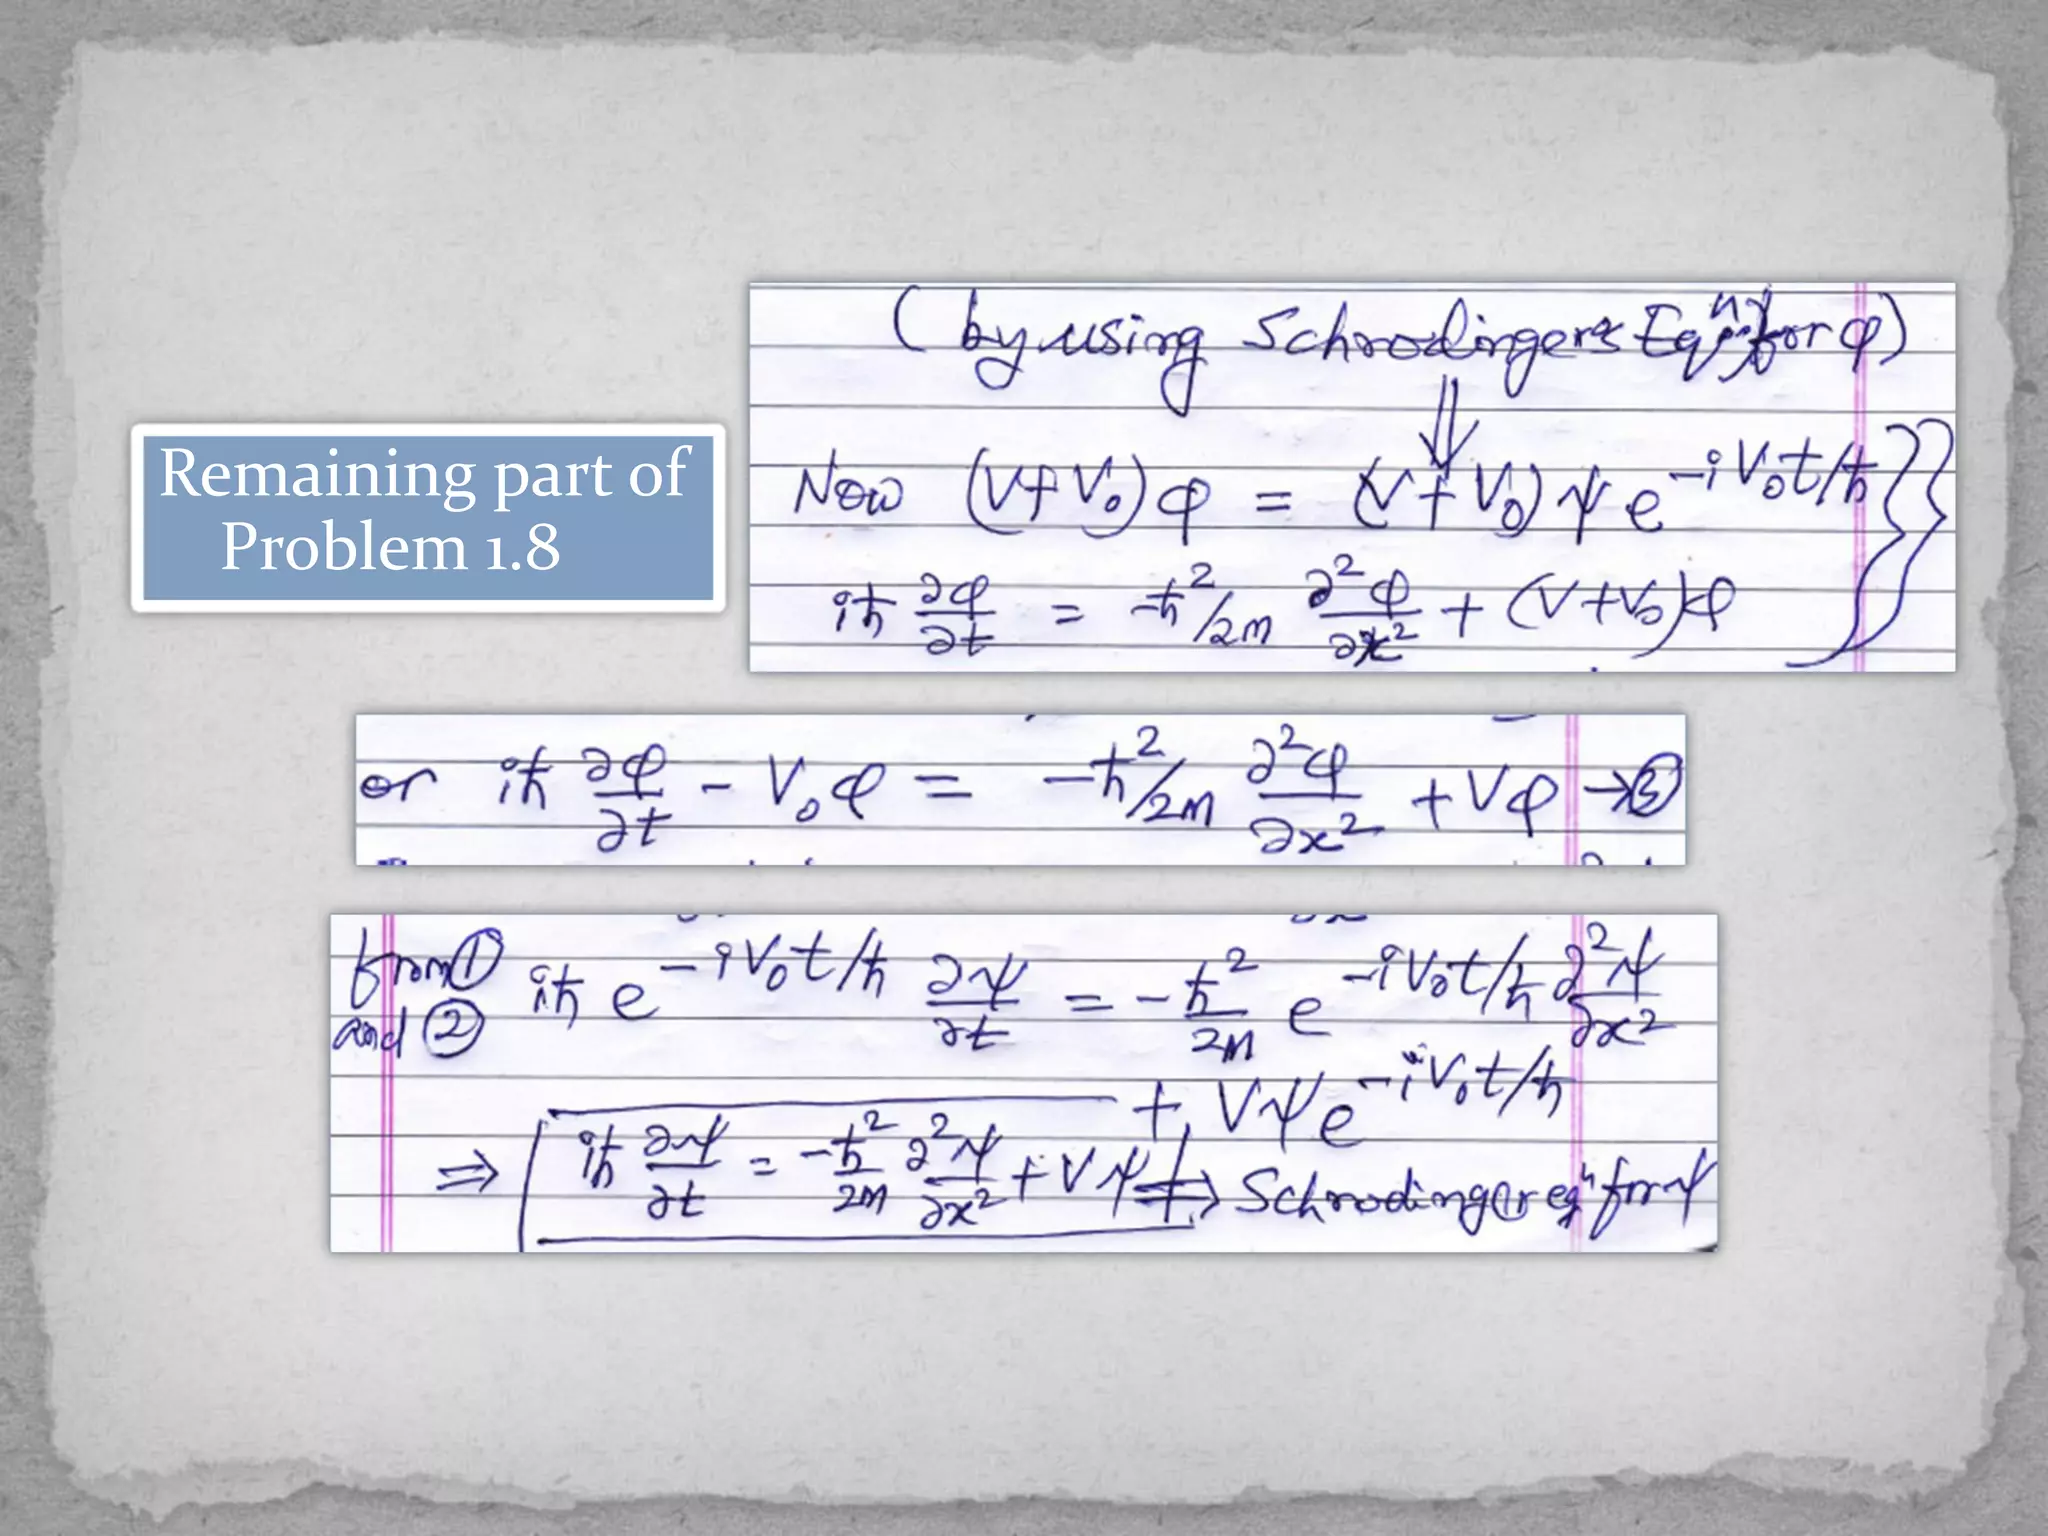 Remaining part of
Problem 1.8
( by using Schrodingers Eqⁿ for φ)
⇓
Now (V+V₀)φ = (V+V₀)ψe^{-iV₀t/ħ}
iħ ∂φ/∂t = -ħ²/2m ∂²φ/∂x² + (V+V₀)φ
or iħ ∂φ/∂t - V₀φ = -ħ²/2m ∂²φ/∂x² + Vφ → ③
from ① and ② iħ e^{-iV₀t/ħ} ∂ψ/∂t = -ħ²/2m e^{-iV₀t/ħ} ∂²ψ/∂x²
+ Vψe^{-iV₀t/ħ}
⇒ iħ ∂ψ/∂t = -ħ²/2m ∂²ψ/∂x² + Vψ ⇒ Schrodinger eqⁿ for ψ